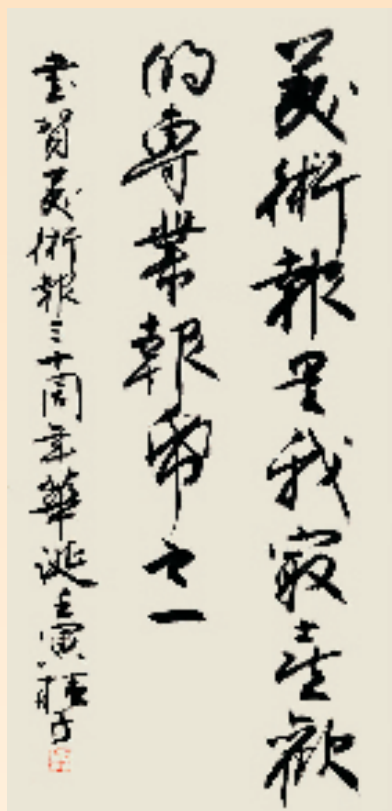 美術報是我最喜歡
的專業報帋之一
書賀美術報三十周年華誕壬寅 子